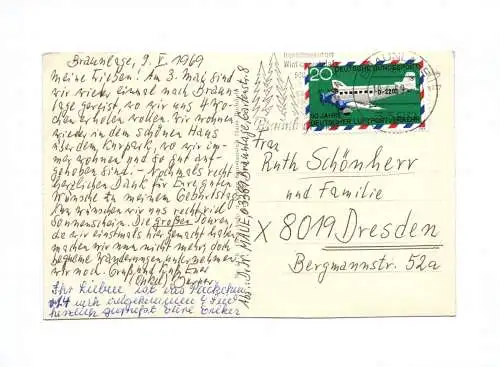 Braunlage, 9. V. 1969
Meine Lieben! Am 3. Mai sind
wir wieder einmal nach Braun
lage gereist, wo wir uns 4 Wo-
chen erholen wollen. Wir wohnen
wieder in dem schönen Haus
über dem Kurpark, wo wir im-
mer wohnen und so gut auf-
gehoben sind. Nochmals recht
herzlichen Dank für Eure guten
Wünsche zu meinem Geburtstag.
wünschen wir uns recht viel
Sonnenschein. Die großen Touren,
die wir einstmals hier gemacht haben,
machen wir nun nicht mehr, doch
bequeme Wanderungen unternehmen
wir noch. Gruß und Kuß Euer
(Onkel)
Ihr Lieben
herzlich gegrüßt Eure
Abs.: 3389 Braunlage
Wintersportplatz
20
DEUTSCHE BUNDESPOST
D-2201
50 JAHRE
DEUTSCHER LUFTPOSTVERKEHR
Frau
Ruth Schönherr
und Familie
X 8019 Dresden
Bergmannstr. 52a